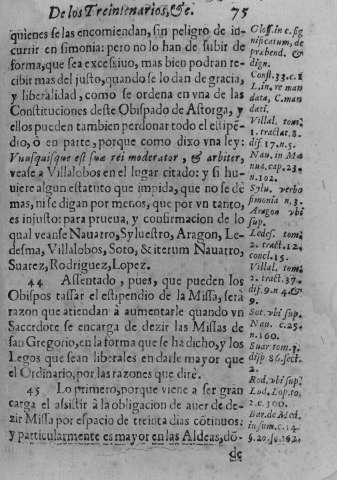 De los Treintenarios, &c. 75
quienes se las encomiendan, sin peligro de in-
currir en simonia: pero no lo han de subir de
forma, que sea excessiuo, mas bien podran re-
cibir mas del justo, quando se lo dan de gracia,
y liberalidad, como se ordena en vna de las
Constituciones deste Obispado de Astorga, y
ellos pueden tambien perdonar todo el estipē-
dio, ò en parte, porque como dixo vna ley:
Vnusquisque est suæ rei moderator, & arbiter,
vease a Villalobos en el lugar citado: y si hu-
uiere algun estatuto que impida, que no se dè
mas, ni se digan por menos, que por vn tanto,
es injusto: para prueua, y confirmacion de lo
qual veanse Nauarro, Syluestro, Aragon, Le-
desma, Villalobos, Soto, & iterum Nauarro,
Suarez, Rodriguez, Lopez.
44 Assentado, pues, que pueden los
Obispos tassar el estipendio de la Missa, serà
razon que atiendan à aumentarle quando vn
Sacerdote se encarga de dezir las Missas de
san Gregorio, en la forma que se ha dicho, y los
Legos que sean liberales en darle mayor que
el Ordinario, por las razones que dirè.
45 Lo primero, porque viene a ser gran
carga el assistir à la obligacion de auer de de-
zir Missa por espacio de treinta dias cōtinuos:
y particularmente es mayor en las Aldeas, dō-
de
Gloss. in c. sig
nificatum, de
prabend. &
dign.
Const. 33. c. 1
L. in. re man
data, C. man
dati.
Villal. tom.
1. tract. 8.
dif. 17. n. 5.
Nau. in Ma
nua. cap. 23.
n. 102.
Sylu. verbo
simonia n. 3.
Aragon vbi
sup.
Ledes. tom.
2. tract. 12.
concl. 15.
Villal. tom.
2. tract. 37.
dif. 9. n. 4. &
9.
Sot. vbi sup.
Nau. c. 25.
n. 160.
Suar. tom. 3.
disp 86. sect.
2.
Rod. vbi sup.
Lud. Lop. to.
2. c. 300.
Bar. de Med.
in sum. c. 14